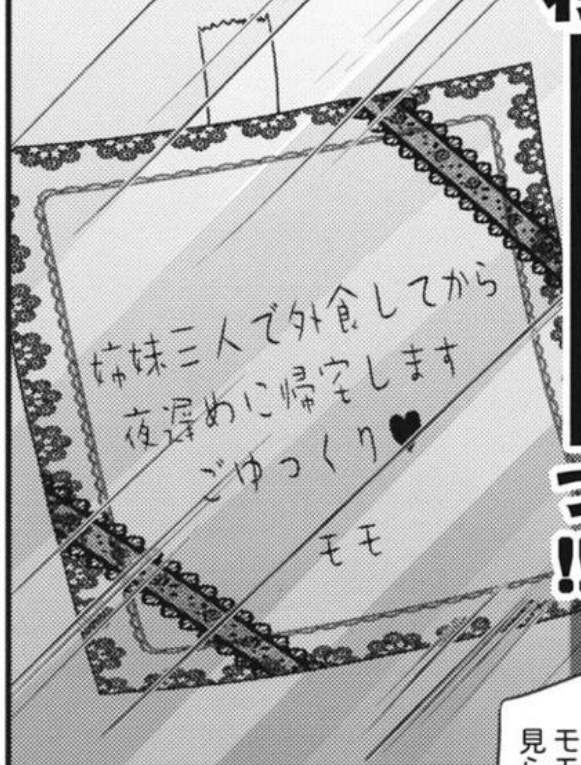 姉妹三人で外食してから
夜遅めに帰宅します
ごゆっくり♥
モモ
!!